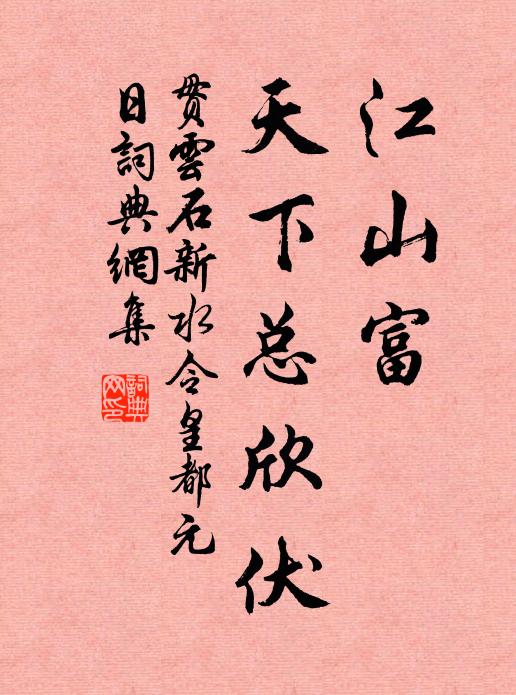 江山富
天下总欣伏
贯雲石新水令皇都元
日詞典網集
詞典
网印